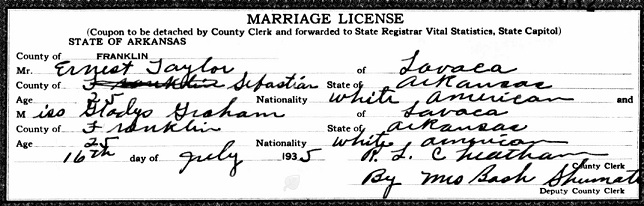 MARRIAGE LICENSE
(Coupon to be detached by County Clerk and forwarded to State Registrar Vital Statistics, State Capitol)
STATE OF ARKANSAS
County of FRANKLIN
Mr. Ernest Taylor of Lavaca
County of Franklin Sebastian State of Arkansas
Age 25 Nationality White American and
Miss Gladys Graham of Lavaca
County of Franklin State of Arkansas
Age 25 Nationality White American
16th day of July 1935 P. L. Cheatham
County Clerk
By Mrs Bash Shumate
Deputy County Clerk